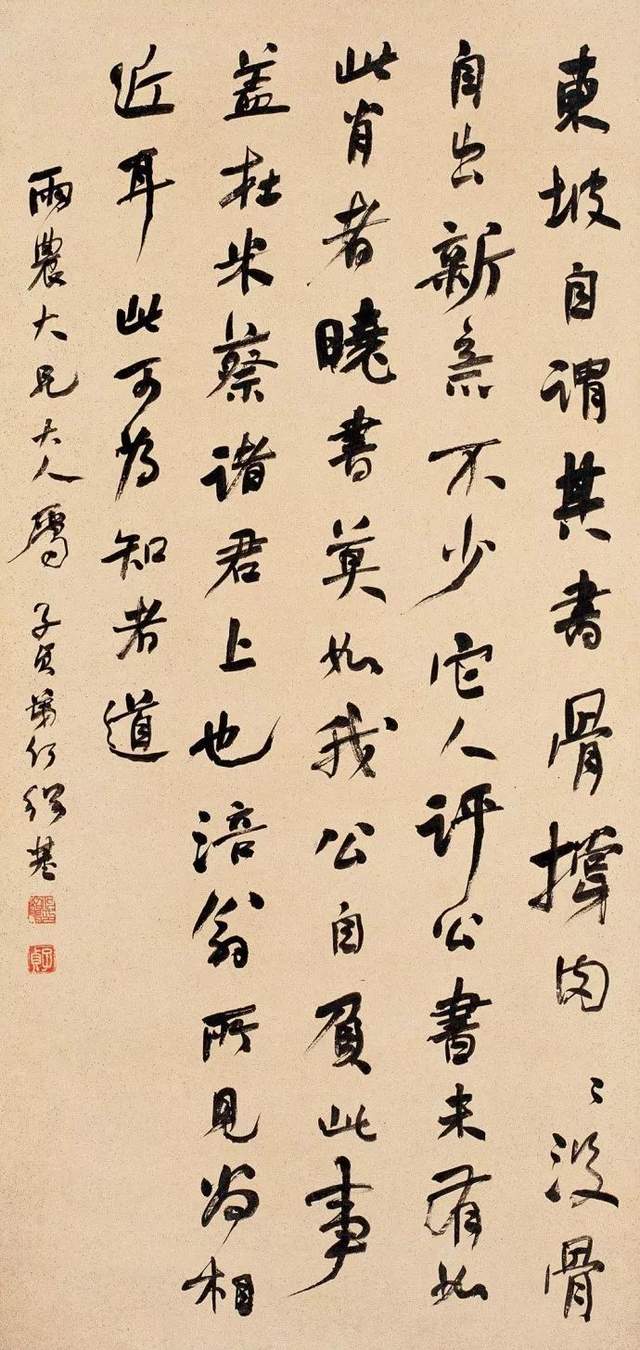 東坡自謂其書骨撐肉〻沒骨
自出新意不少它人評公書未有如
此肖者曉書莫如我公自負此事
蓋杜米蔡諸君上也涪翁所見為相
近耳此可為知者道
雨農大兄大人屬 子貞弟何紹基
子貞